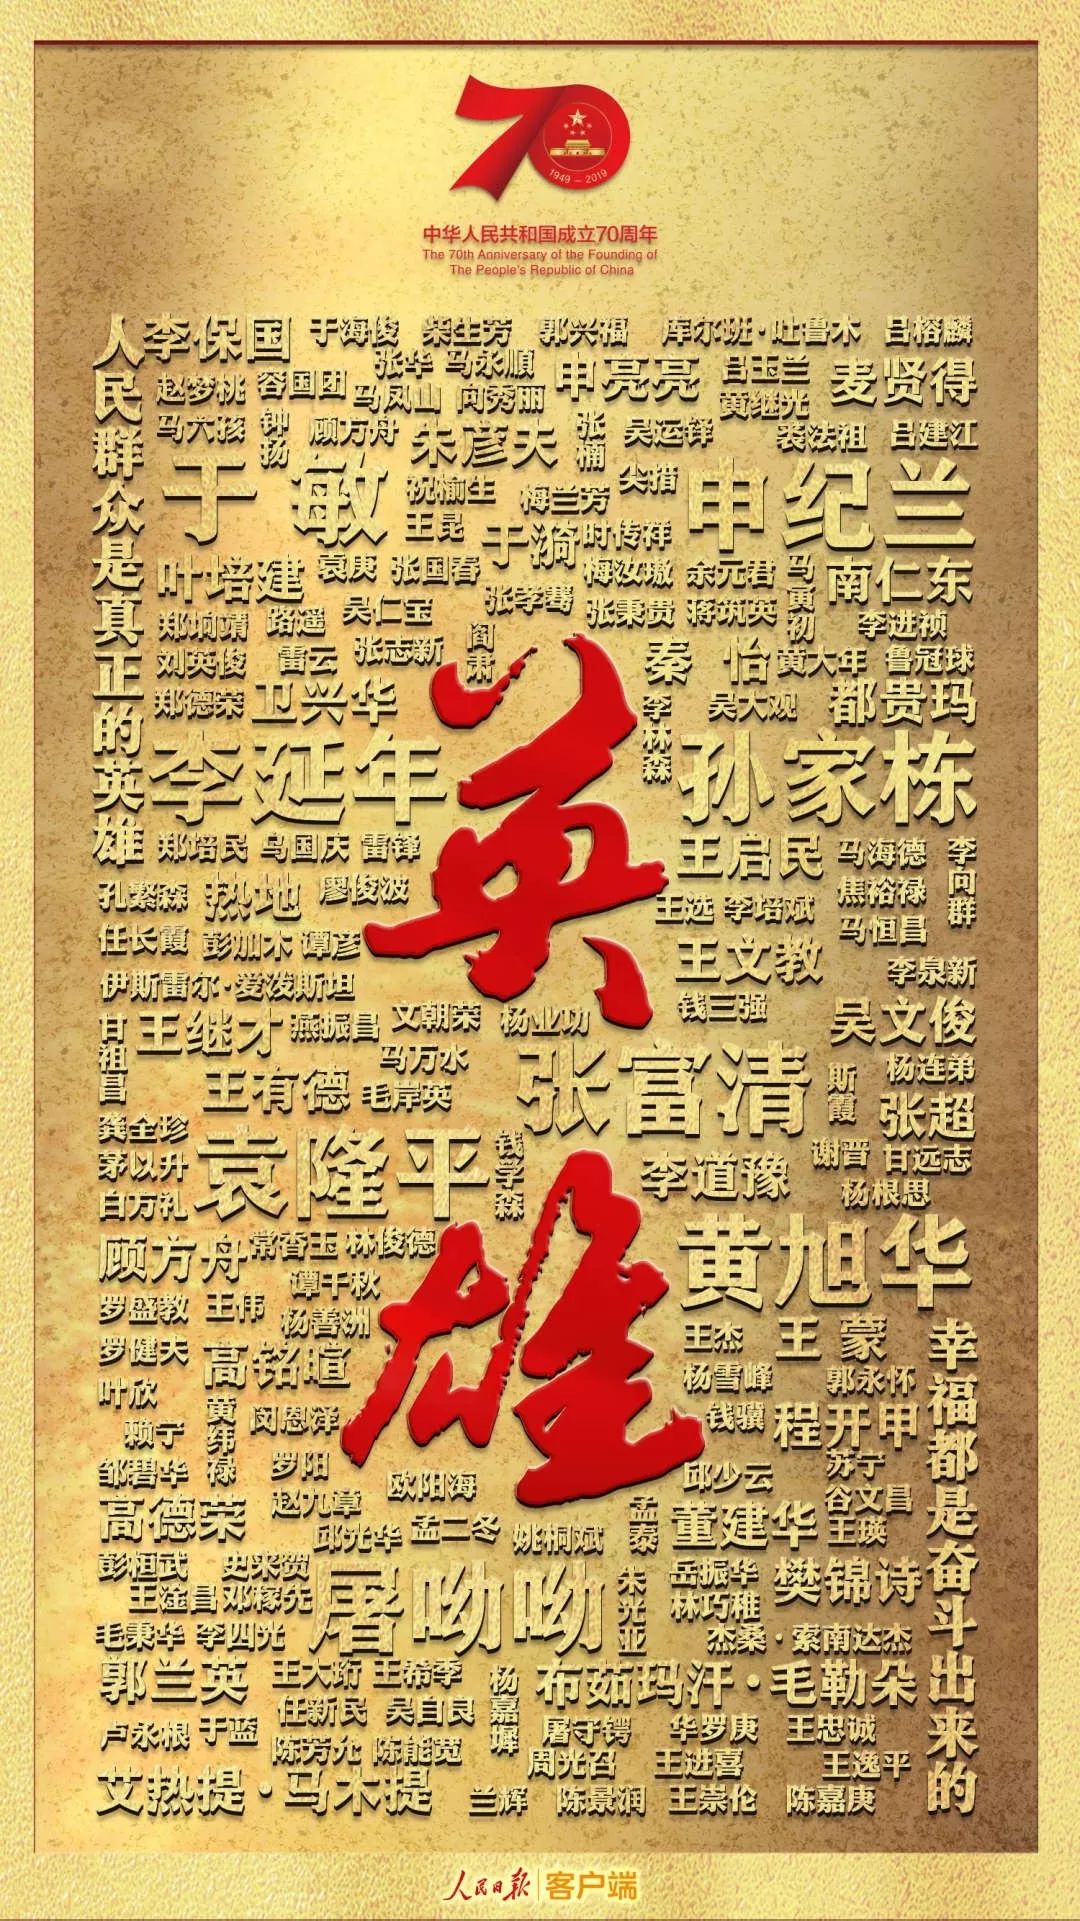 70
1949-2019
中华人民共和国成立70周年
The 70th Anniversary of the Founding of
The People's Republic of China
人民群众是真正的英雄
李保国 于海俊 柴生芳 郭兴福 库尔班·吐鲁木 吕榕麟
张华 马永顺
赵梦桃 容国团 马凤山 向秀丽 申亮亮 吕玉兰 麦贤得
黄继光
马六孩 钟扬 顾方舟 朱彦夫 张楠 吴运铎 裘法祖 吕建江
于敏 祝榆生 梅兰芳 尖措 申纪兰
王昆 于漪 时传祥
叶培建 袁庚 张国春 梅汝璈 余元君 马寅初 南仁东
郑垧靖 路遥 吴仁宝 张孝骞 张秉贵 蒋筑英 李进祯
刘英俊 雷云 张志新 阎肃 秦怡 黄大年 鲁冠球
郑德荣 卫兴华 李林森 吴大观 都贵玛
李延年 孙家栋
郑培民 乌国庆 雷锋 王启民 马海德 李向群
孔繁森 热地 廖俊波 王选 李培斌 焦裕禄
任长霞 彭加木 谭彦 王文教 马恒昌
伊斯雷尔·爱泼斯坦 李泉新
甘祖昌 王继才 燕振昌 文朝荣 杨业功 钱三强 吴文俊
马万水 张富清 斯霞 杨连弟
王有德 毛岸英 张超
龚全珍 袁隆平 钱学森 李道豫 谢晋 甘远志
茅以升 杨根思
白万礼
顾方舟 常香玉 林俊德 黄旭华
谭千秋
罗盛教 王伟 杨善洲 王杰 王蒙
罗健夫 高铭暄 杨雪峰 郭永怀
叶欣 黄纬禄 闵恩泽 钱骥 程开甲
赖宁
邹碧华 罗阳 欧阳海 邱少云 苏宁
高德荣 赵九章 孟泰 董建华 谷文昌
邱光华 孟二冬 姚桐斌 王瑛
彭桓武 史来贺 屠呦呦 朱光亚 岳振华 樊锦诗
王淦昌 邓稼先 林巧稚
毛秉华 李四光 杰桑·索南达杰
郭兰英 王大珩 王希季 杨嘉墀 布茹玛汗·毛勒朵
卢永根 于蓝 任新民 吴自良 屠守锷 华罗庚 王忠诚
陈芳允 陈能宽 周光召 王进喜 王逸平
艾热提·马木提 兰辉 陈景润 王崇伦 陈嘉庚
英雄
幸福都是奋斗出来的
人民日报 客户端